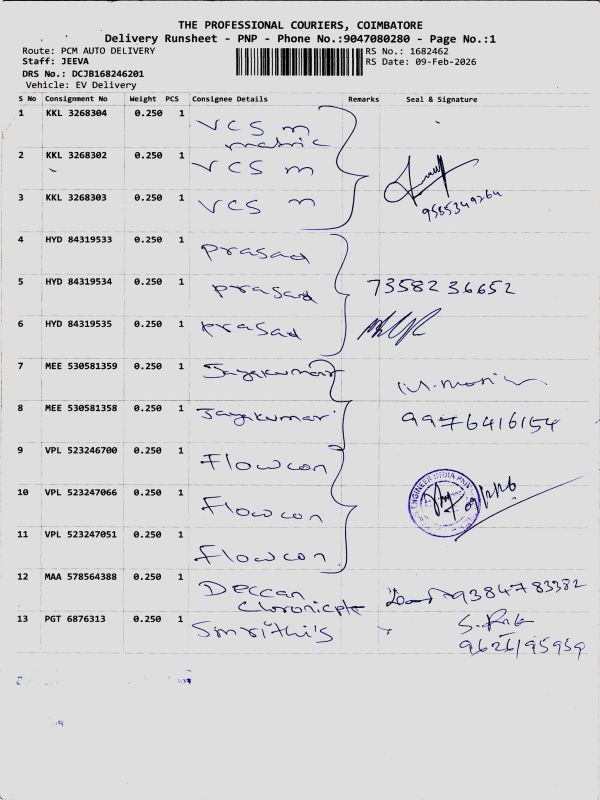 THE PROFESSIONAL COURIERS, COIMBATORE
Delivery Runsheet - PNP - Phone No.:9047080280 - Page No.:1
Route: PCM AUTO DELIVERY RS No.: 1682462
Staff: JEEVA RS Date: 09-Feb-2026
DRS No.: DCJB168246201
Vehicle: EV Delivery
S No Consignment No Weight PCS Consignee Details Remarks Seal & Signature
1 KKL 3268304 0.250 1 VCS m
matric
2 KKL 3268302 0.250 1 VCS m
3 KKL 3268303 0.250 1 VCS m
9585349264
4 HYD 84319533 0.250 1 Prasad
5 HYD 84319534 0.250 1 Prasad 73582 36652
6 HYD 84319535 0.250 1 Prasad
7 MEE 530581359 0.250 1 Jayakumar
8 MEE 530581358 0.250 1 Jayakumar 9976416154
9 VPL 523246700 0.250 1 Flowcon
10 VPL 523247066 0.250 1 Flowcon
11 VPL 523247051 0.250 1 Flowcon
12 MAA 578564388 0.250 1 Deccan 9384783382
Chronicle
13 PGT 6876313 0.250 1 Smrithi's